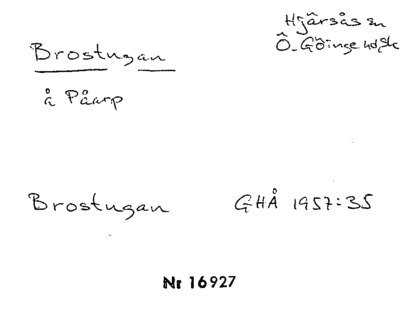 Brostugan
Hjärsås sn
Ö. Göinge hd, Sk
å Påarp
Brostugan GHÅ 1957:35
Nr 16927